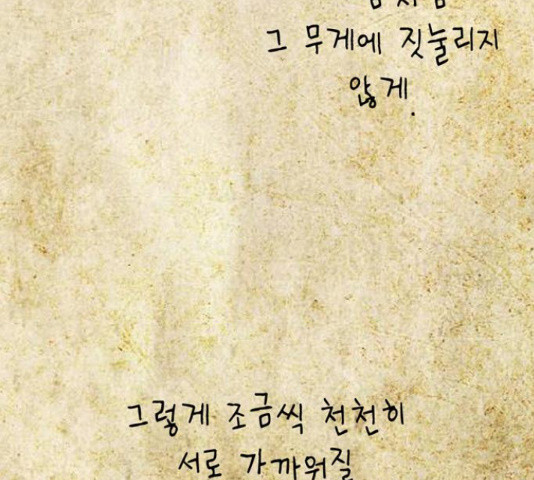 그 무게에 짓눌리지
않게.
그렇게 조금씩 천천히
서로 가까워질